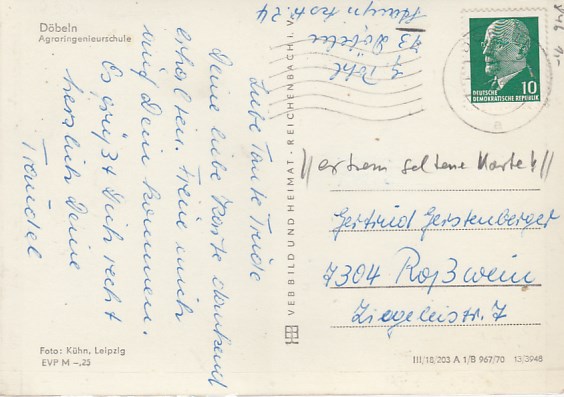 Döbeln
Agraringenieurschule
Liebe Tante Trude
Deine liebe Karte dankend
erhalten. Freue mich
auf Dein kommen.
Es grüßt Dich recht
herzlich Deine
Traudel
Foto: Kühn, Leipzig
EVP M –,25
VEB BILD UND HEIMAT · REICHENBACH I. V.
73 Döbeln
10
DEUTSCHE
DEMOKRATISCHE REPUBLIK
//extrem seltene Karte!//
Gertrud Gerstenberger
7304 Roßwein
Ziegeleistr. 7
III/18/203 A 1/B 967/70 13/3948